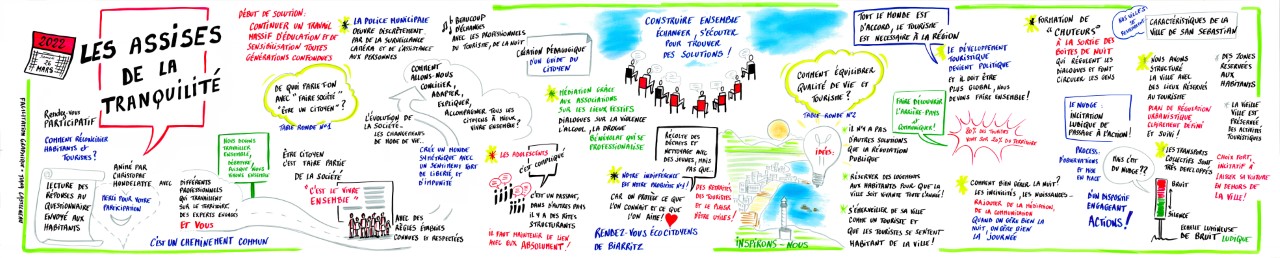 2022
26
MARS
LES ASSISES
DE LA
TRANQUILITÉ
Rendez-vous
PARTICIPATIF
COMMENT RÉCONCILIER
HABITANTS et
TOURISTES ?
LECTURE DES
RETOURS AU
QUESTIONNAIRE
ENVOYÉ AUX
HABITANTS
ANIMÉ PAR
CHRISTOPHE
HONDELATTE AVEC
MERCI POUR VOTRE
PARTICIPATION
DIFFÉRENTS
PROFESSIONNELS
QUI TRAVAILLENT
SUR LE TERRITOIRE
DES EXPERTS
ET VOUS
C'EST UN CHEMINEMENT COMMUN
DÉBUT DE SOLUTION :
CONTINUER UN TRAVAIL
MASSIF D'ÉDUCATION ET DE
SENSIBILISATION TOUTES
GÉNÉRATIONS CONFONDUES
LA POLICE MUNICIPALE
OEUVRE DISCRÈTEMENT,
PAR DE LA SURVEILLANCE
CAMÉRA ET DE L'ASSISTANCE
AUX PERSONNES
BEAUCOUP
D'ÉCHANGES
AVEC LES PROFESSIONNELS
DU TOURISME, DE LA NUIT
DE QUOI PARLE-T-ON
AVEC "FAIRE SOCIÉTÉ"
"ÊTRE UN CITOYEN" ?
TABLE RONDE N°1
NOUS DEVONS
TRAVAILLER
ENSEMBLE,
PUISQUE NOUS
VIVONS ENSEMBLE
ÊTRE CITOYEN
C'EST FAIRE PARTIE
DE LA SOCIÉTÉ
"C'EST LE VIVRE
ENSEMBLE"
AVEC DES
RÈGLES ÉNONCÉES
CONNUES et RESPECTÉES
L'ÉVOLUTION DE
LA SOCIÉTÉ...
LES CHANGEMENTS
DE MODE DE VIE...
COMMENT
ALLONS-NOUS
CONCILIER,
ADAPTER,
EXPLIQUER,
ACCOMPAGNER TOUS LES
CITOYENS À MIEUX
VIVRE ENSEMBLE ?
CRÉE UN MONDE
AVEC
UN SENTIMENT
DE LIBERTÉ ET
D'IMPUNITÉ
CRÉATION PÉDAGOGIQUE
D'UN GUIDE DU
CITOYEN
LES ADOLESCENTS
C'EST COMPLIQUÉ
C'EST UN PASSAGE,
DANS D'AUTRES PAYS
IL Y A DES RITES
STRUCTURANTS
IL FAUT MAINTENIR LE LIEN
AVEC EUX ABSOLUMENT !
MÉDIATION GRÂCE
AUX ASSOCIATIONS
SUR LES LIEUX FESTIFS
DIALOGUES SUR LA VIOLENCE
L'ALCOOL, LA DROGUE
BÉNÉVOLAT QUI SE
PROFESSIONNALISE
CONSTRUIRE ENSEMBLE
ÉCHANGER, S'ÉCOUTER
POUR TROUVER
DES SOLUTIONS !
RÉCOLTE DES
DÉCHETS ET
NETTOYAGE AVEC
DES JEUNES, MAIS
PAS QUE...
DES RETRAITÉS,
DES TOURISTES
ET LE PLAISIR
D'ÊTRE UTILES !
NOTRE INDIFFÉRENCE
EST NOTRE PROBLÈME N°1 !
CAR ON PROTÈGE CE QUE
L'ON CONNAIT ET CE QUE
L'ON AIME !
RENDEZ-VOUS ÉCO CITOYENS
DE BIARRITZ
INSPIRONS-NOUS
IDÉES
COMMENT ÉQUILIBRER
QUALITÉ DE VIE ET
TOURISME ?
TABLE-RONDE N°2
IL N'Y A PAS
D'AUTRES SOLUTIONS
QUE LA RÉGULATION
PUBLIQUE
RÉSERVER DES LOGEMENTS
AUX HABITANTS POUR QUE LA
VILLE SOIT VIVANTE TOUTE L'ANNÉE !
S'ÉMERVEILLER DE SA VILLE
COMME UN TOURISTE ET
QUE LES TOURISTES SE SENTENT
HABITANT DE LA VILLE !
TOUT LE MONDE EST
D'ACCORD, LE TOURISME
EST NÉCESSAIRE À LA RÉGION
FAIRE DÉCOUVRIR
L'ARRIÈRE-PAYS
et
COMMUNIQUER !
LE DÉVELOPPEMENT
TOURISTIQUE
DEVIENT POLITIQUE
ET IL DOIT ÊTRE
PLUS GLOBAL, NOUS
DEVONS FAIRE ENSEMBLE !
80% DES TOURISTES
VONT SUR 20% DU TERRITOIRE
COMMENT BIEN GÉRER LA NUIT ?
LES INCIVILITÉS, LES NUISSANCES...
RAJOUTER DE LA MÉDIATION,
DE LA COMMUNICATION
QUAND ON GÈRE BIEN LA
NUIT, ON GÈRE BIEN
LA JOURNÉE
FORMATION DE
"CHUTEURS"
À LA SORTIE DES
BOITES DE NUIT
QUI RÉGULENT LES
DIALOGUES ET FONT
CIRCULER LES GENS
LE NUDGE :
INCITATION
LUDIQUE DE
PASSAGE À L'ACTION !
PROCESS :
D'OBSERVATIONS
ET MISE
EN PLACE
D'UN DISPOSITIF
ENGAGEANT
ACTIONS !
MAIS C'EST
QUOI
DU NUDGE ??
CARACTÉRISTIQUES DE LA
VILLE DE SAN SEBASTIAN
NOUS AVONS
STRUCTURÉ
LA VILLE AVEC
DES LIEUX RÉSERVÉS
AU TOURISME
PLAN DE RÉGULATION
URBANISTIQUE,
CLAIREMENT DÉFINI
ET SUIVI !
DES ZONES
RÉSERVÉES
AUX
HABITANTS
LA VIEILLE
VILLE EST
PRÉSERVÉE
DES ACTIVITÉS
TOURISTIQUES
LES TRANSPORTS
COLLECTIFS SONT
TRÈS DÉVELOPPÉS
CHOIX FORT,
INCITATIF À
LAISSER SA VOITURE
EN DEHORS DE
LA VILLE !
BRUIT
SILENCE
ÉCHELLE LUMINEUSE
DE BRUIT LUDIQUE